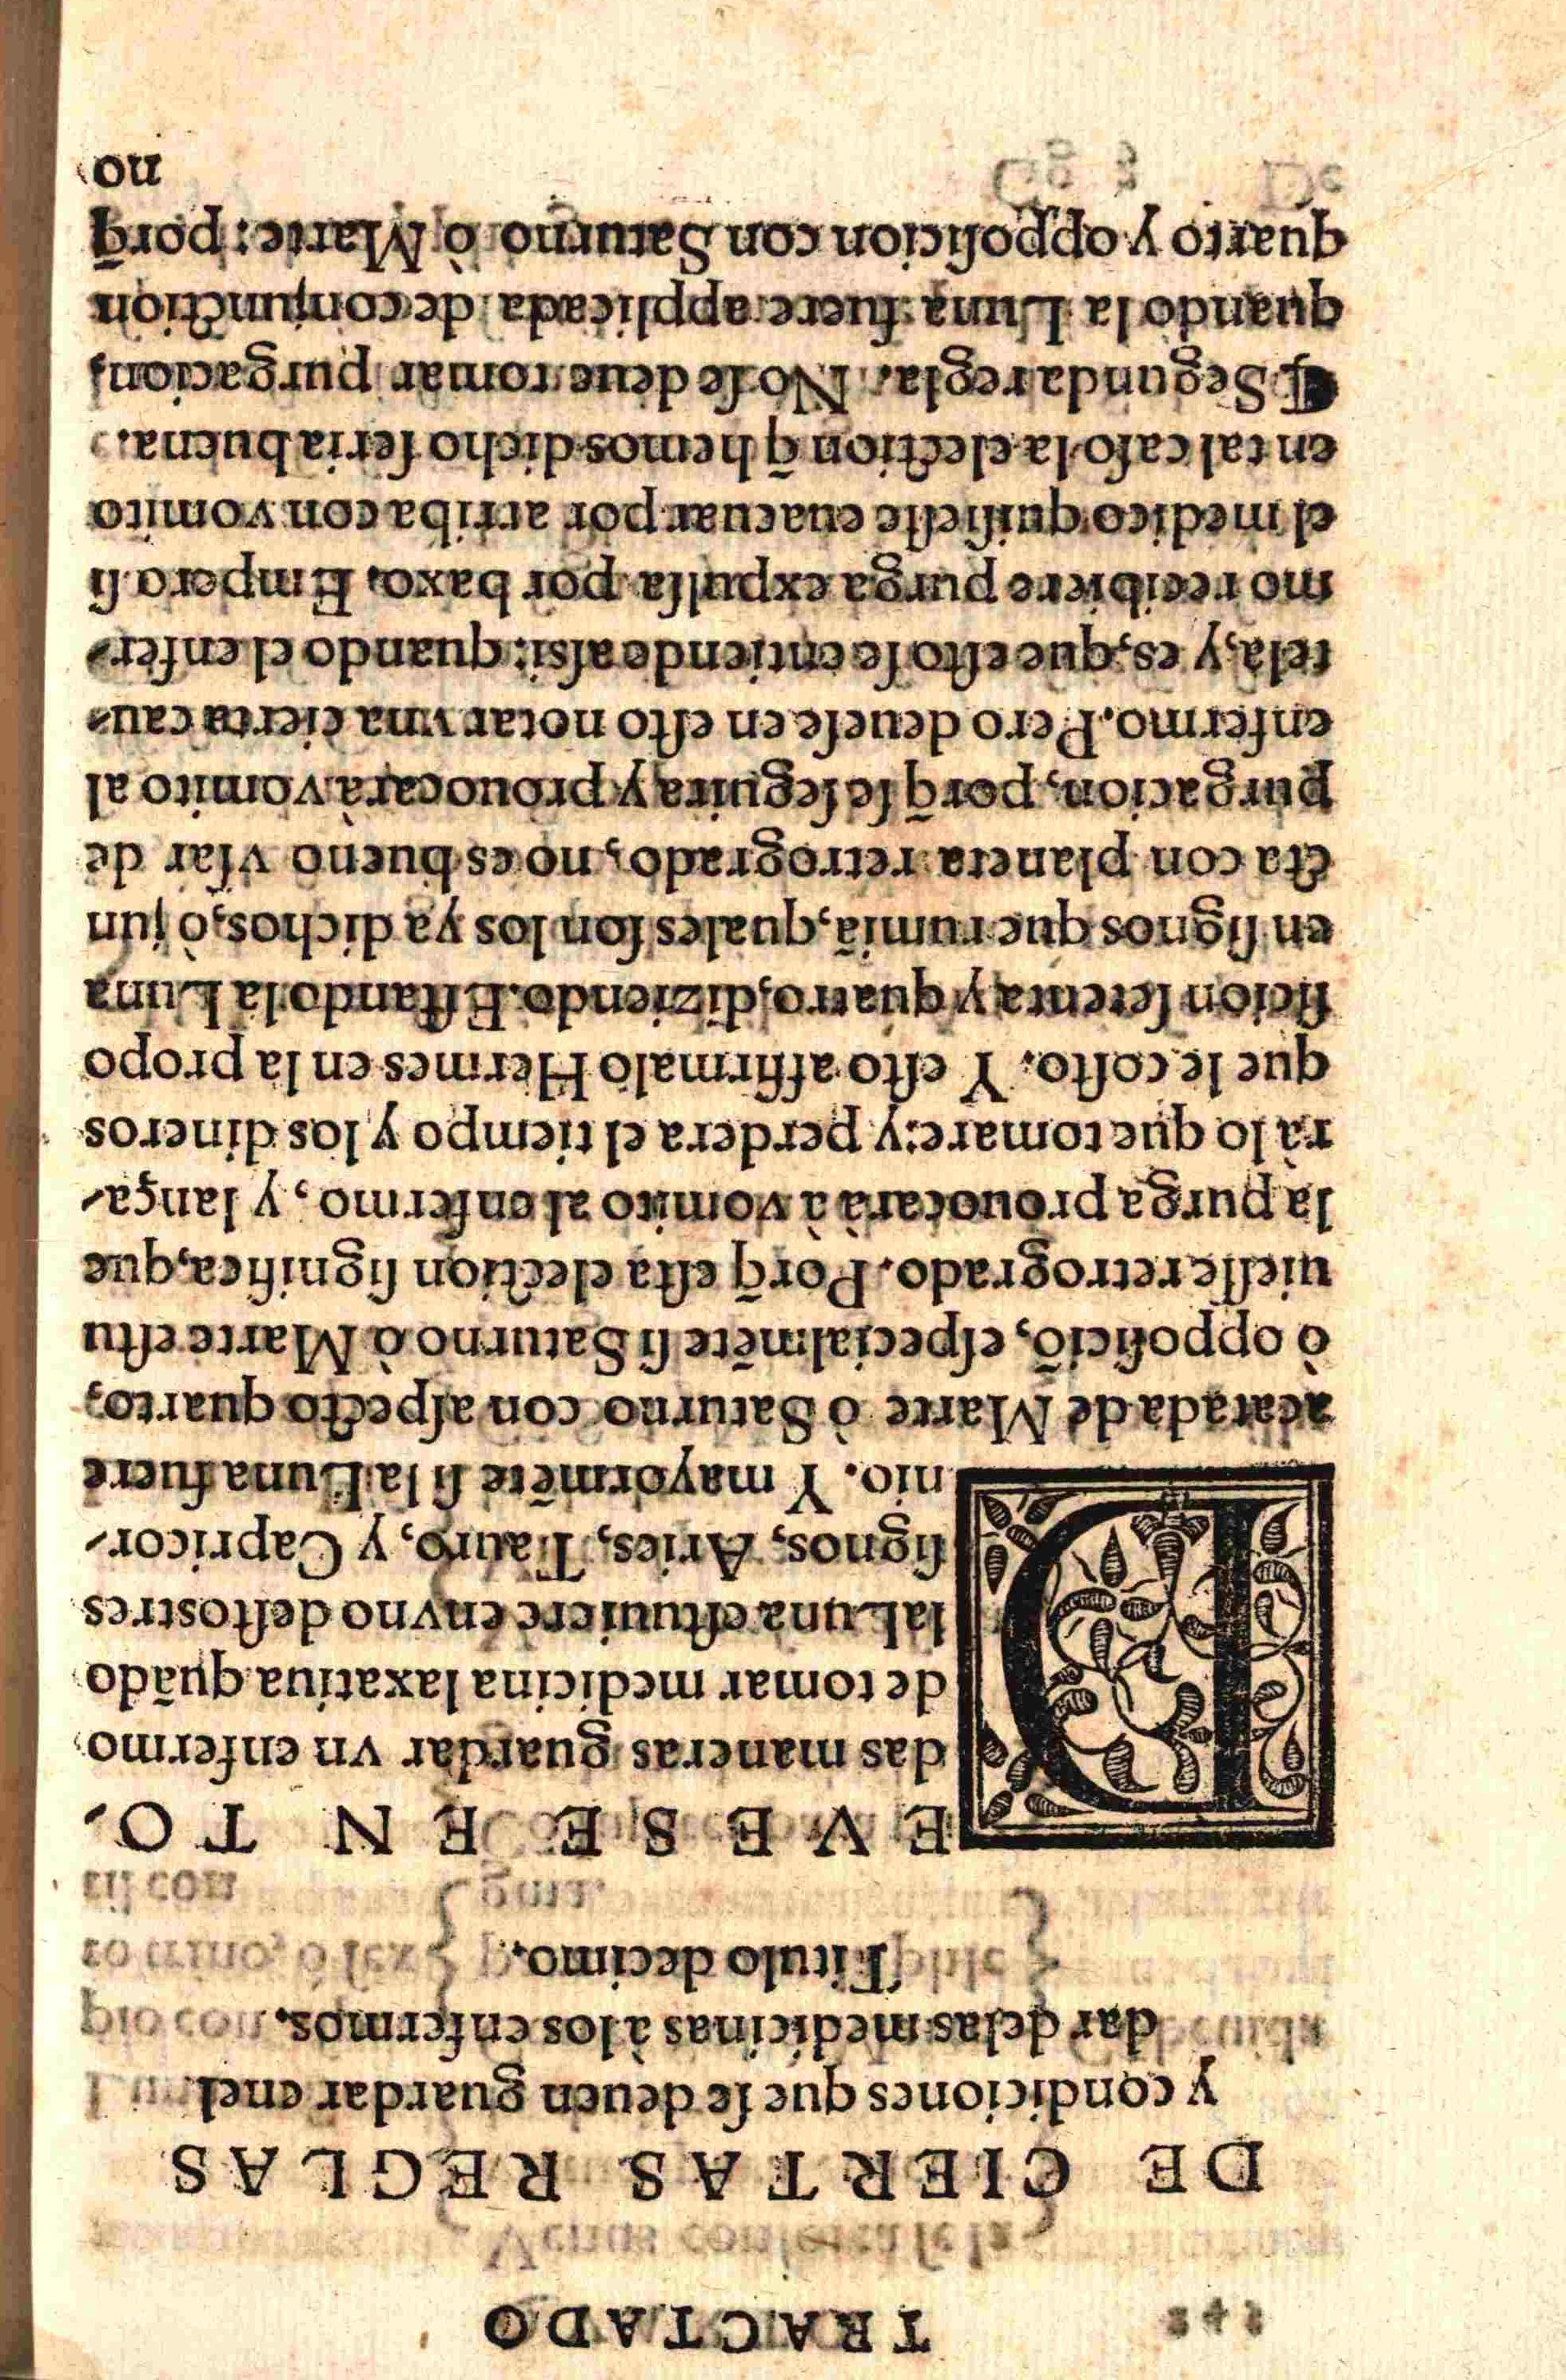 TRACTADO
DE CIERTAS REGLAS
y condiciones que ſe deuen guardar enel
dar delas medicinas à los enfermos.
Titulo decimo.
DEVESE EN TO-
das maneras guardar vn enfermo
de tomar medicina laxatiua quãdo
la Luna eſtuuiere en vno deſtos tres
ſignos, Aries, Tauro, y Capricor-
nio. Y mayormẽte ſi la Luna fuere
acatada de Marte ò Saturno con aſpecto quarto,
ò oppoſiciõ, eſpecialmẽte ſi Saturno ò Marte eſtu
uieſſe retrogrado. Porq̃ eſta election ſignifica, que
la purga prouocarà à vomito al enfermo, y lança-
rà lo que tomare: y perdera el tiempo y los dineros
que le coſto. Y eſto affirmalo Hermes en la propo
ſicion ſetenta y quatro, diziendo. Eſtando la Luna
en ſignos que rumiã, quales ſon los ya dichos, ò jun
cta con planeta retrogrado, no es bueno vſar de
purgacion, porq̃ ſe ſeguira y prouocarà vomito al
enfermo. Pero deueſe en eſto notar vna cierta cau-
tela, y es, que eſto ſe entiende aſsi: quando el enfer-
mo recibiere purga expulſa por baxo. Empero ſi
el medico quiſieſſe euacuar por arriba con vomito
en tal caſo la election q̃ hemos dicho ſeria buena.
¶ Segunda regla. No ſe deue tomar purgacion,
quando la Luna fuere applicada de conjunction
quarto y oppoſicion con Saturno ò Marte: porq̃
no